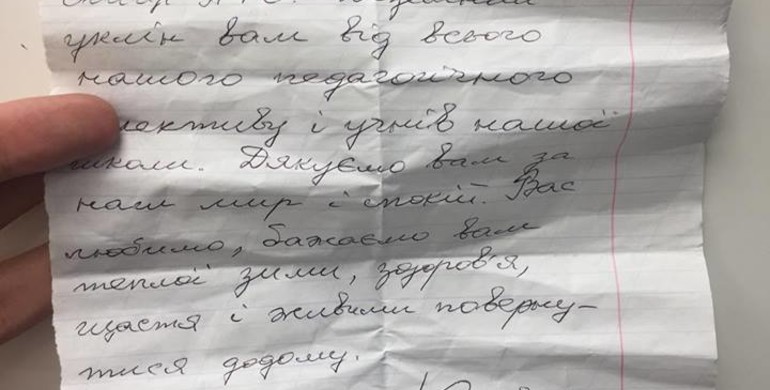 уклін вам від всього
нашого педагогічного
колективу і учнів нашої
школи. Дякуємо вам за
наш мир і спокій. Вас
любимо, бажаємо вам
теплої зими, здоров'я,
щастя і живими поверну-
тися додому.